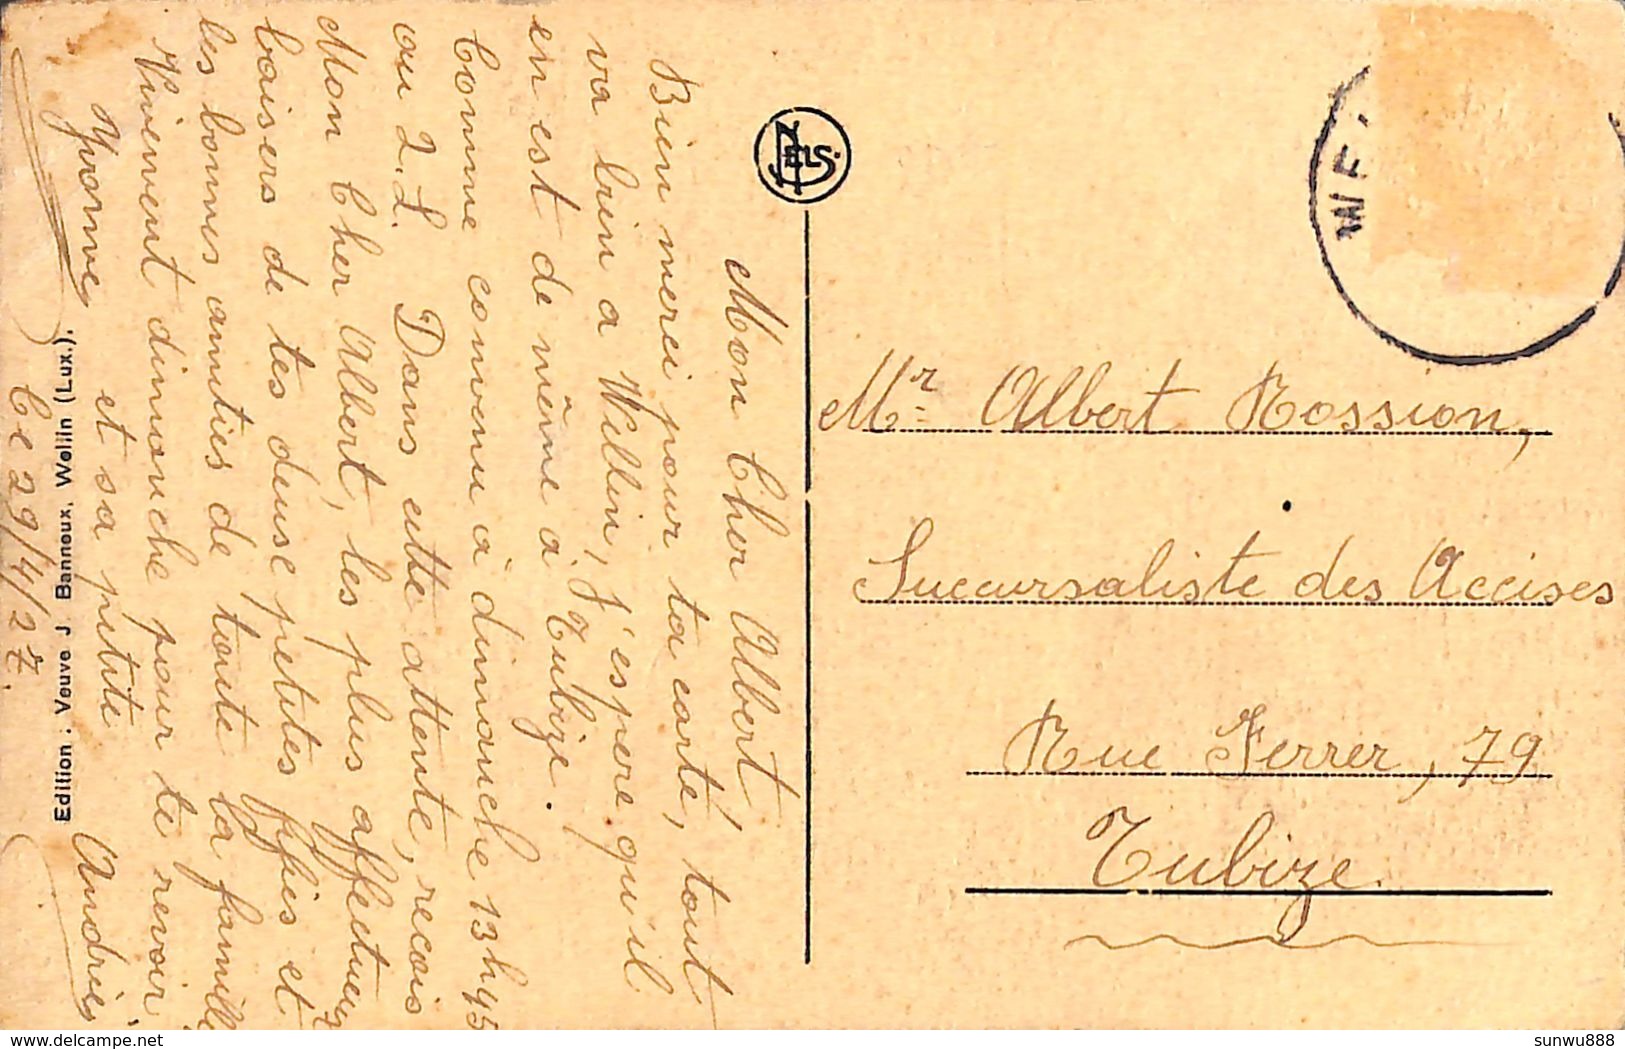 Mon Cher Albert,
Bien merci pour ta carte, tout
va bien a Wellin, j'espere qu'il
en est de même à Tubize.
Comme convenu à dimanche 13h45
ou 2.L. Dans cette attente, recois
Mon Cher Albert, les plus affectueux
baisers de tes deuse petites ffies et
les bonnes amitiés de toute la famille
Vivement dimanche pour te revoir
Yvonne et sa petite Andrée
Ce 29/4/27
Edition : Veuve J Banneux, Wellin (Lux.).
NELS
WE
Mr Albert Rossion,
Succursaliste des Accises
Rue Ferrer, 79
Tubize.
delcampe.net
sunwu888